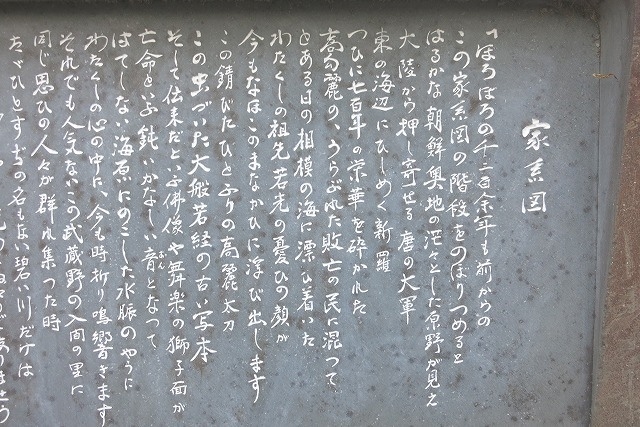 家系図
「ほろほろの千二百余年も前からの
この家系図の階段をのぼりつめると
はるかな朝鮮奥地の茫々とした原野が見え
大陸から押し寄せる唐の大軍
東の海辺にひしめく新羅
つひに七百年の栄華を砕かれた
高句麗の、うらぶれた敗亡の民に混つて
とある日の相模の海に漂ひ着いた
わたくしの祖先若光の憂ひの顔が
今もなほこのまなかひに浮び出します
この錆びたひとふりの高麗太刀
この虫づいた大般若経の古い写本
そして伝来だといふ佛像や舞楽の獅子面が
亡命といふ鈍いかなしい音となつて
おん
はてしない海原にのこした水脈のやうに
わたくしの心の中に今も時折り鳴響きます
それでも人気ないこの武蔵野の入間の里に
同じ思ひの人々が群れ集つた時
の名も
碧い川だけは